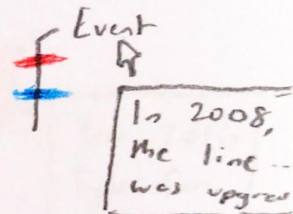 Event
In 2008,
the line...
was upgra